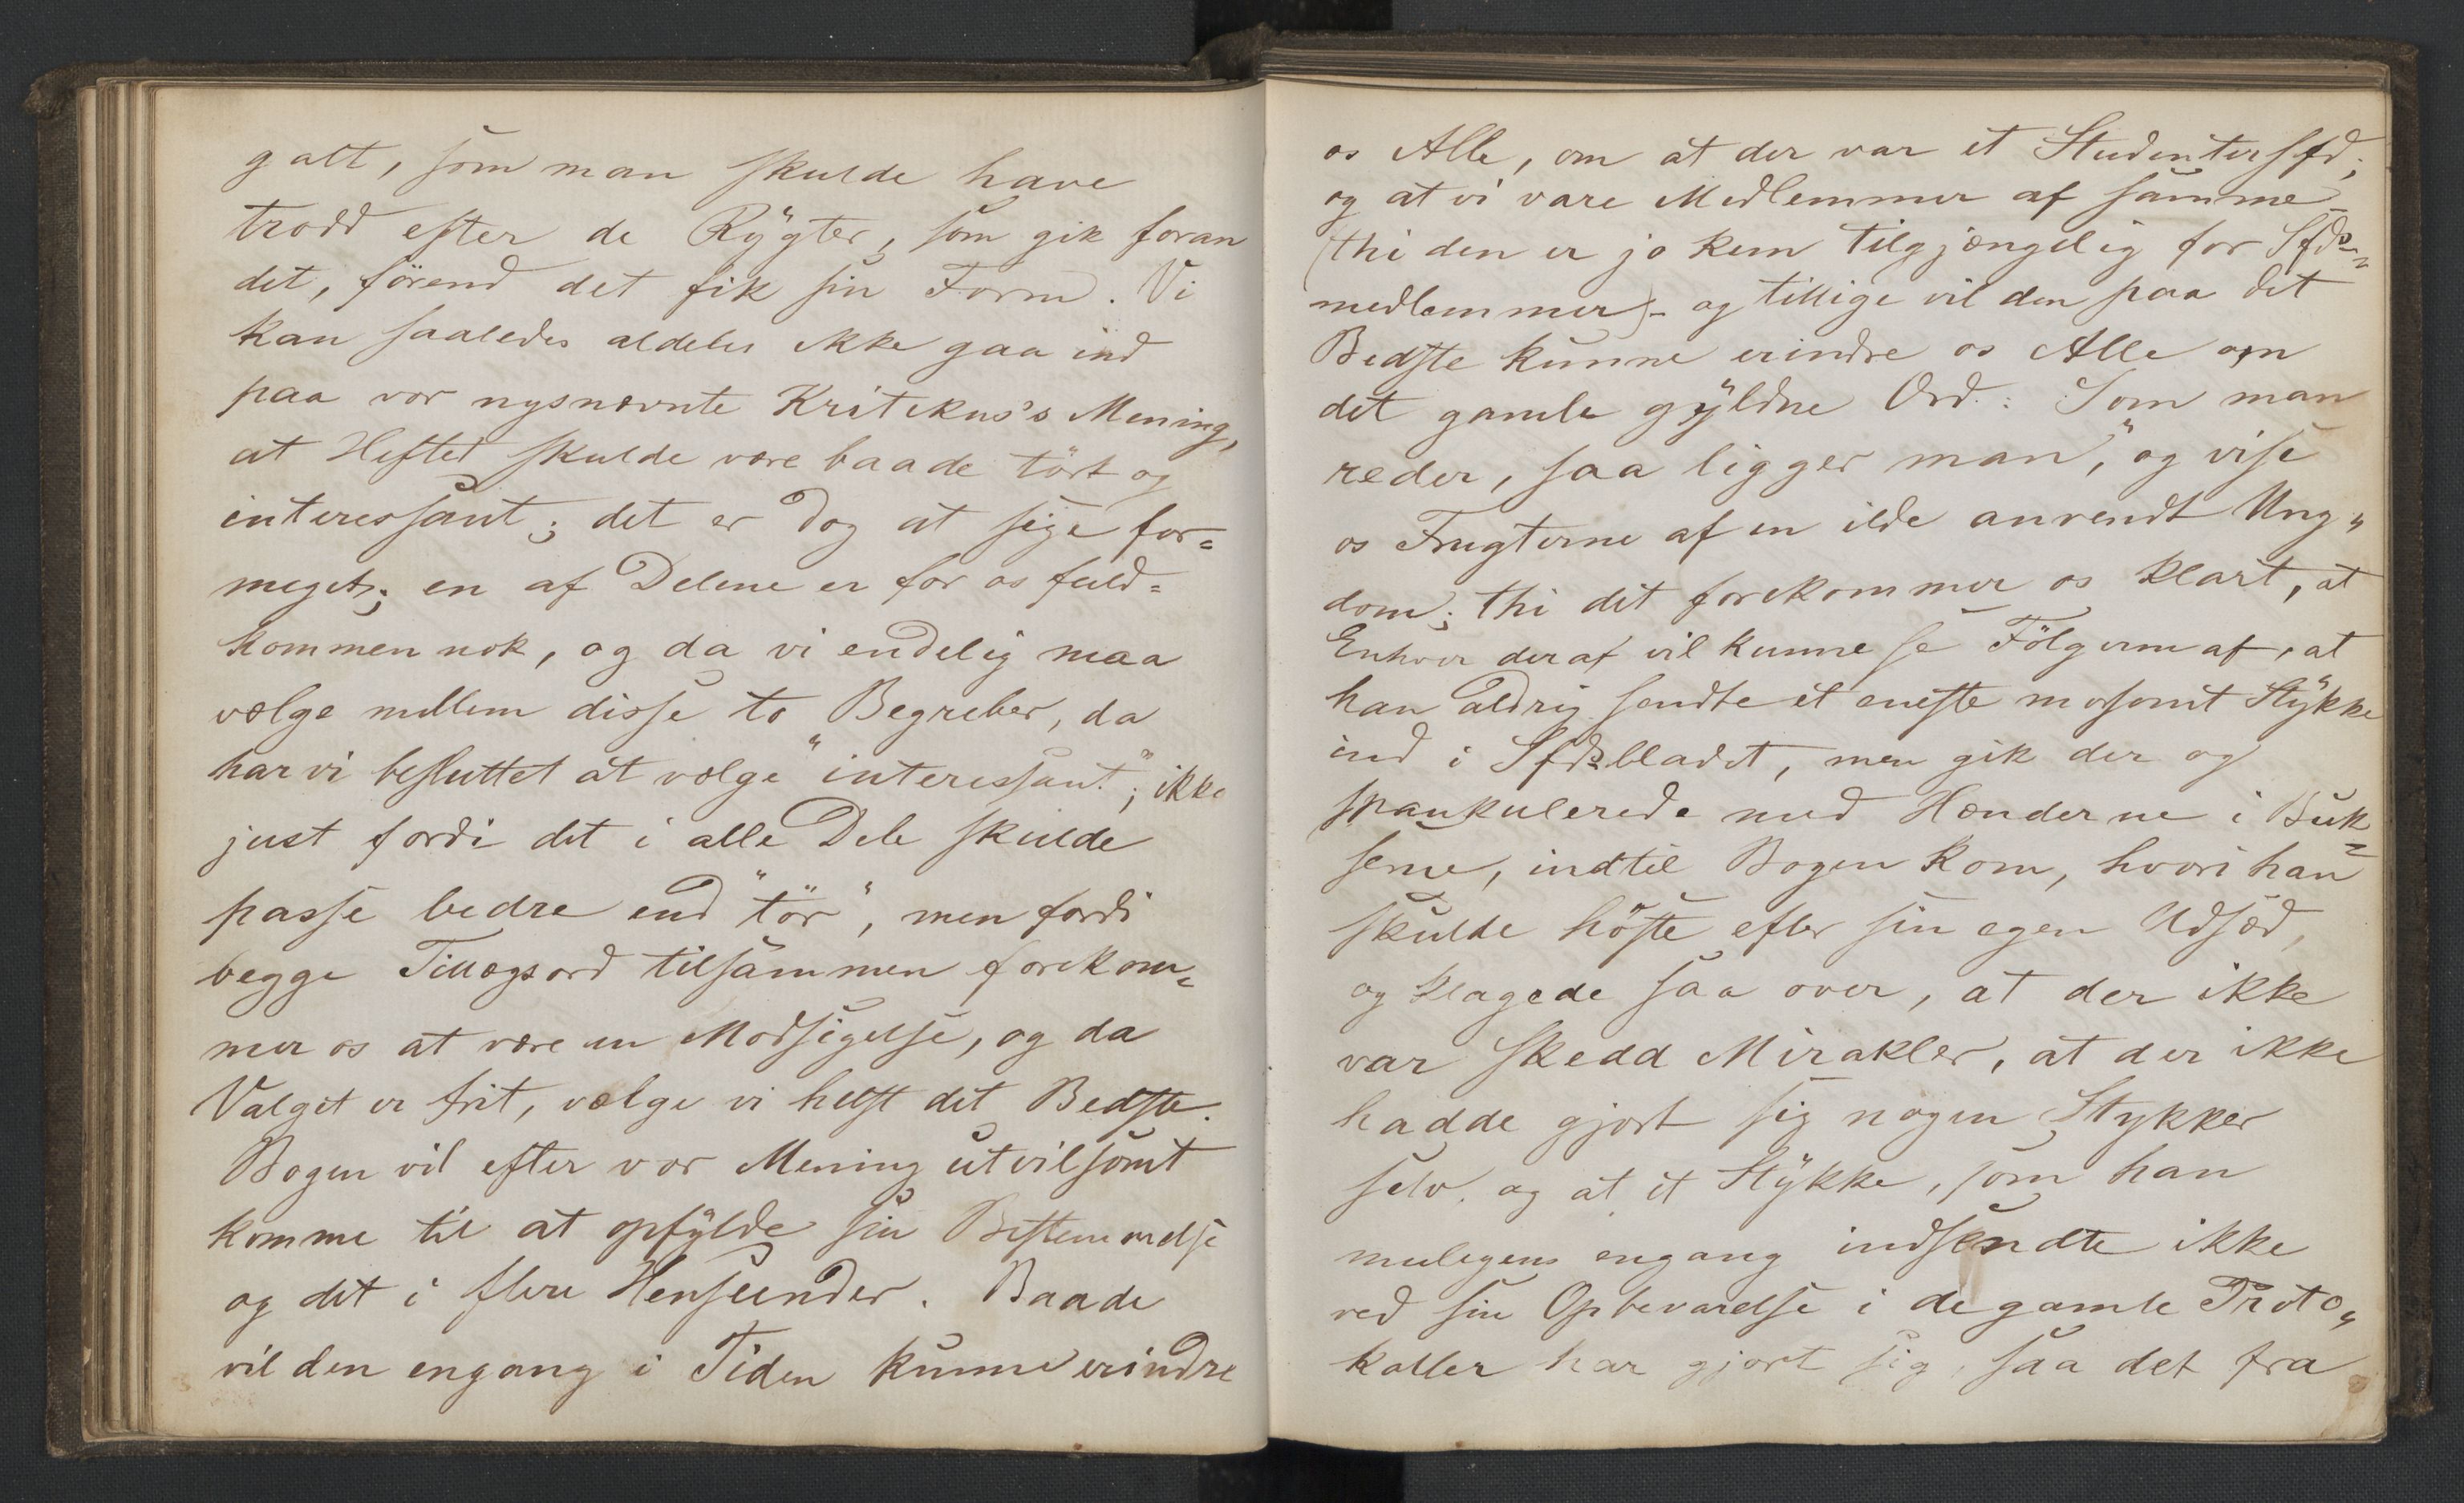 galt, som man skulde have
trodd efter de Rÿgter, som gik foran
det, förend det fik sin Form. Vi
kan saaledes aldeles ikke gaa ind
paa vor nysnævnte Kritikus's Mening,
at Heftet skulde være baade tört og
interessant; det er dog at sige for=
meget; en af Delene er for os fuld=
kommen nok, og da vi endelig maa
vælge mellem disse to Begreber, da
har vi besluttet at vælge "interessant"; ikke
just fordi det i alle Dele skulde
passe bedre end "tör", men fordi
begge Tillægsord tilsammen forekom=
mer os at være en Modsigelse, og da
Valget er frit, vælge vi helst det Bedste.
Bogen vil efter vor Mening utvilsomt
komme til at opfÿlde sin Bestemmelse
og det i flere Henseender. Baade
vil den engang i Tiden kunne erindre
os Alle, om at der var et Studentersfd,
og at vi vare Medlemmer af samme
(thi den er jo kun tilgjængelig for Sfds=
medlemmer) – og tillige vil den paa det
Bedste kunne erindre os Alle om
det gamle gÿldne Ord: Som man
reder, saa ligger man," og vise
os Frugterne af en ilde anvendt Ung=
dom; thi det forekommer os klart, at
Enhver deraf vil kunne se Fölgerne af, at
han aldrig sendte et eneste morsomt Stÿkke
ind i Sfdsbladet, men gik der og
spankulerede med Hænderne i Buk=
serne, indtil Bogen kom, hvori han
skulde höste efter sin egen Udsæd,
og klagede saa over, at der ikke
var skedd Mirakler, at der ikke
hadde gjort sig nogen Stykker
selv, og at et Stÿkke, som han
muligens engang indsendte ikke
ved sin Opbevarelse i de gamle Proto=
koller har gjort sig, saa det fra